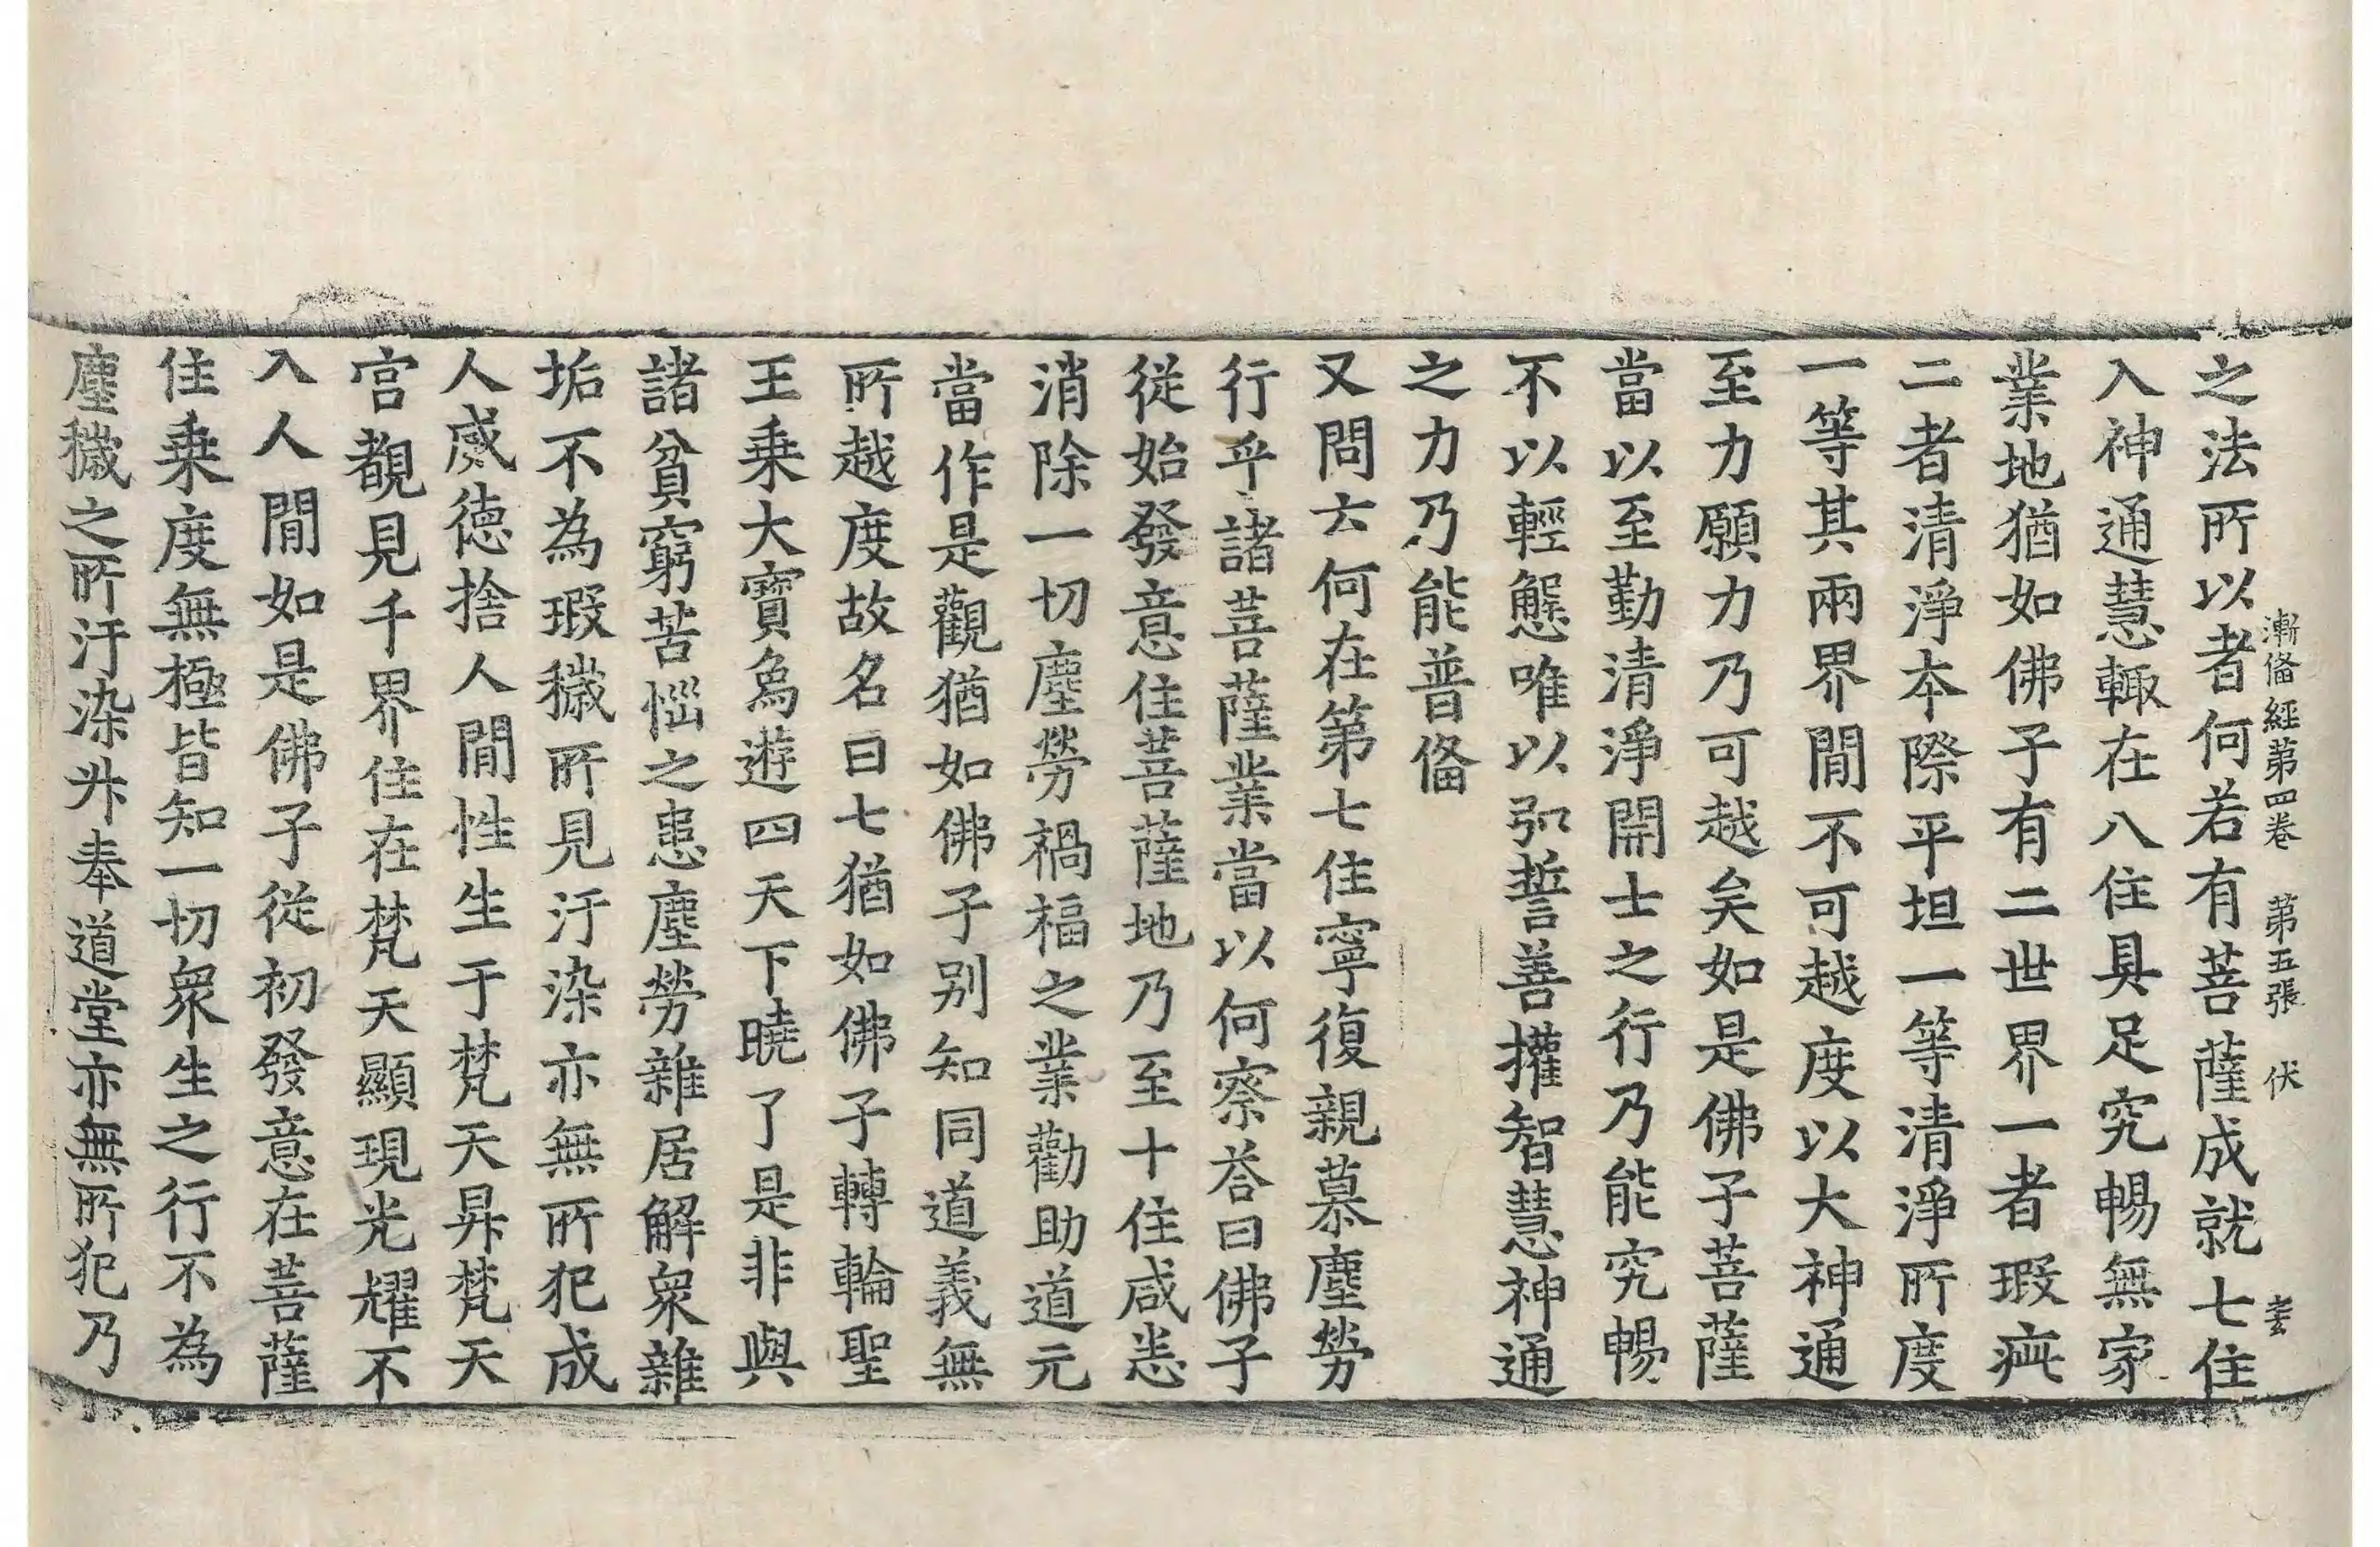 漸俻經第四卷　第五張　伏
之法所以者何若有菩薩成就七住
入神通慧輙在八住具足究暢無家
業地猶如佛子有二世界一者瑕疵
二者清淨本際平坦一等清淨所度
一等其兩界閒不可越度以大神通
至力願力乃可越矣如是佛子菩薩
當以至勤清淨開士之行乃能究暢
不以輕態唯以弘誓善權智慧神通
之力乃能普俻
又問云何在第七住寧復親慕塵勞
行乎諸菩薩業當以何察荅曰佛子
從始發意住菩薩地乃至十住咸悉
消除一切塵勞禍福之業勸助道元
當作是觀猶如佛子別知同道義無
所越度故名曰七猶如佛子轉輪聖
王乗大寶象遊四天下曉了是非與
諸貧窮苦惱之患塵勞雜居解衆雜
垢不為瑕穢所見汙染亦無所犯成
人威徳捨人閒性生于梵天昇梵天
宮覩見千界住在梵天顯現光耀不
入人閒如是佛子從初發意在菩薩
住乗度無極皆知一切衆生之行不為
塵穢之所汙染升奉道堂亦無所犯乃